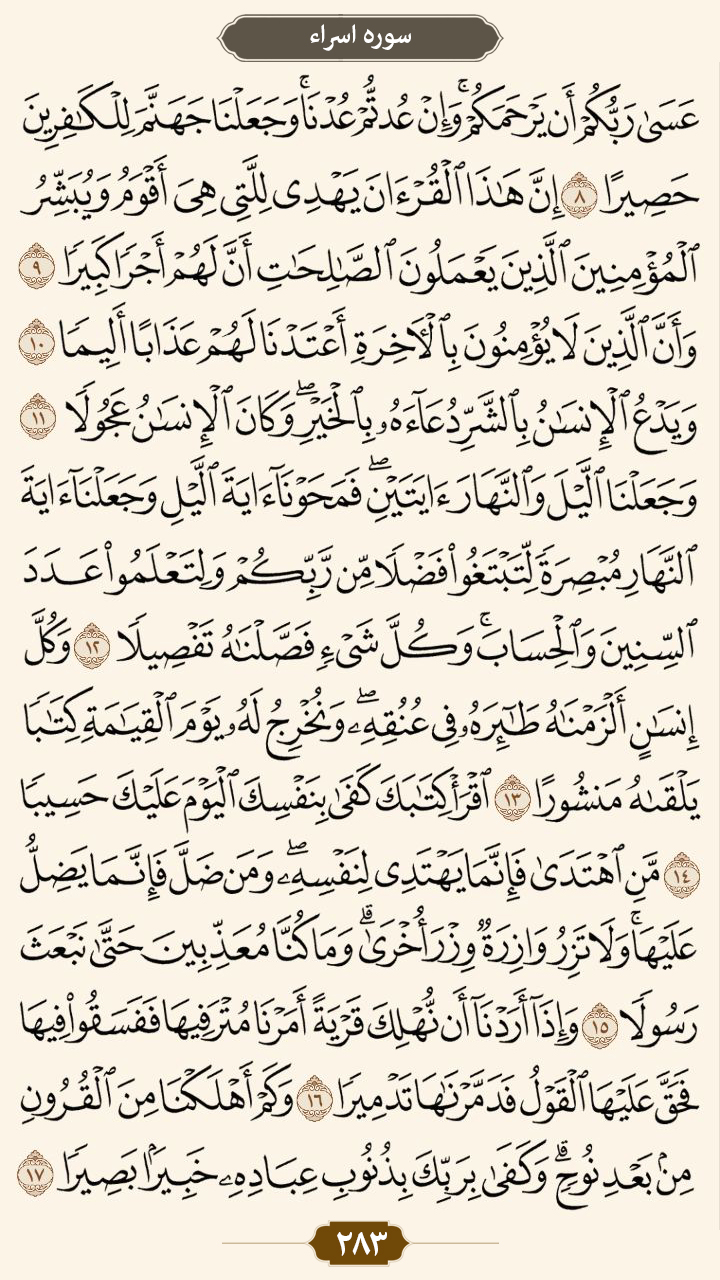 سوره اسراء
عَسَىٰ رَبُّكُمْ أَن يَرْحَمَكُمْ ۚ وَإِنْ عُدتُّمْ عُدْنَا ۘ وَجَعَلْنَا جَهَنَّمَ لِلْكَـٰفِرِينَ
حَصِيرًا ٨ إِنَّ هَـٰذَا ٱلْقُرْءَانَ يَهْدِى لِلَّتِى هِىَ أَقْوَمُ وَيُبَشِّرُ
ٱلْمُؤْمِنِينَ ٱلَّذِينَ يَعْمَلُونَ ٱلصَّـٰلِحَـٰتِ أَنَّ لَهُمْ أَجْرًا كَبِيرًا ٩
وَأَنَّ ٱلَّذِينَ لَا يُؤْمِنُونَ بِٱلْـَٔاخِرَةِ أَعْتَدْنَا لَهُمْ عَذَابًا أَلِيمًا ١٠
وَيَدْعُ ٱلْإِنسَـٰنُ بِٱلشَّرِّ دُعَآءَهُۥ بِٱلْخَيْرِ ۖ وَكَانَ ٱلْإِنسَـٰنُ عَجُولًا ١١
وَجَعَلْنَا ٱلَّيْلَ وَٱلنَّهَارَ ءَايَتَيْنِ ۖ فَمَحَوْنَآ ءَايَةَ ٱلَّيْلِ وَجَعَلْنَآ ءَايَةَ
ٱلنَّهَارِ مُبْصِرَةً لِّتَبْتَغُوا۟ فَضْلًا مِّن رَّبِّكُمْ وَلِتَعْلَمُوا۟ عَدَدَ
ٱلسِّنِينَ وَٱلْحِسَابَ ۚ وَكُلَّ شَىْءٍ فَصَّلْنَـٰهُ تَفْصِيلًا ١٢ وَكُلَّ
إِنسَـٰنٍ أَلْزَمْنَـٰهُ طَـٰٓئِرَهُۥ فِى عُنُقِهِۦ ۖ وَنُخْرِجُ لَهُۥ يَوْمَ ٱلْقِيَـٰمَةِ كِتَـٰبًا
يَلْقَىٰهُ مَنشُورًا ١٣ ٱقْرَأْ كِتَـٰبَكَ كَفَىٰ بِنَفْسِكَ ٱلْيَوْمَ عَلَيْكَ حَسِيبًا
١٤ مَّنِ ٱهْتَدَىٰ فَإِنَّمَا يَهْتَدِى لِنَفْسِهِۦ ۖ وَمَن ضَلَّ فَإِنَّمَا يَضِلُّ
عَلَيْهَا ۚ وَلَا تَزِرُ وَازِرَةٌ وِزْرَ أُخْرَىٰ ۗ وَمَا كُنَّا مُعَذِّبِينَ حَتَّىٰ نَبْعَثَ
رَسُولًا ١٥ وَإِذَآ أَرَدْنَآ أَن نُّهْلِكَ قَرْيَةً أَمَرْنَا مُتْرَفِيهَا فَفَسَقُوا۟ فِيهَا
فَحَقَّ عَلَيْهَا ٱلْقَوْلُ فَدَمَّرْنَـٰهَا تَدْمِيرًا ١٦ وَكَمْ أَهْلَكْنَا مِنَ ٱلْقُرُونِ
مِنۢ بَعْدِ نُوحٍ ۗ وَكَفَىٰ بِرَبِّكَ بِذُنُوبِ عِبَادِهِۦ خَبِيرًۢا بَصِيرًا ١٧
٢٨٣